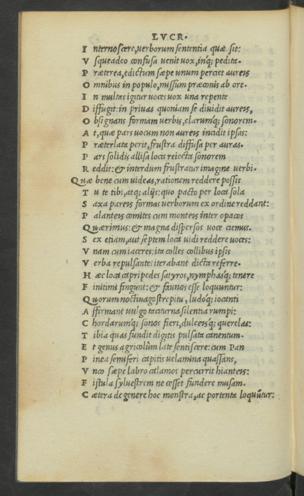 LVCR.
I nternoscere, uerborum sententia quæ sit:
V squeadeo confusa uenit uox, inq; pedita.
P ræterea, edictum sæpe unum perciet aureis
O mnibus in populo, missum præconis ab ore.
I n multas igitur uoces uox una repente
D iffugit: in priuas quoniam se diuidit aureis,
O bsignans formam uerbis, clarumq; sonorem.
A t, quæ pars uocum non aureis incidit ipsas:
P ræterlata perit, frustra diffusa per auras.
P ars solidis allisa locis reiecta sonorem
R eddit: & interdum frustratur imagine uerbi.
Q uæ bene cum uideas, rationem reddere possis
T u te tibi, atq; alijs: quo pacto per loca sola
S axa pareis formas uerborum ex ordine reddant:
P alanteis comites cum monteis inter opacos
Q uærimus: & magna dispersos uoce ciemus.
S ex etiam, aut septem loca uidi reddere uoces:
V nam cum iaceres: ita colles collibus ipsis
V erba repulsantes iterabant dicta referre.
H æc loca capripedes satyros, nymphasq; tenere
F initimi fingunt: & faunos esse loquuntur:
Q uorum noctiuago strepitu, ludoq; iocanti
A ffirmant uulgo taciturna silentia rumpi:
C hordarumq; sonos fieri, dulceisq; querelas:
T ibia quas fundit digitis pulsata canentum.
E t genus agricolûm late sentiscere: cum Pan
P inea semiferi capitis uelamina quassans,
V nco sæpe labro calamos percurrit hianteis:
F istula syluestrem ne cesset fundere musam.
C ætera de genere hoc monstra, ac portenta loquûtur: